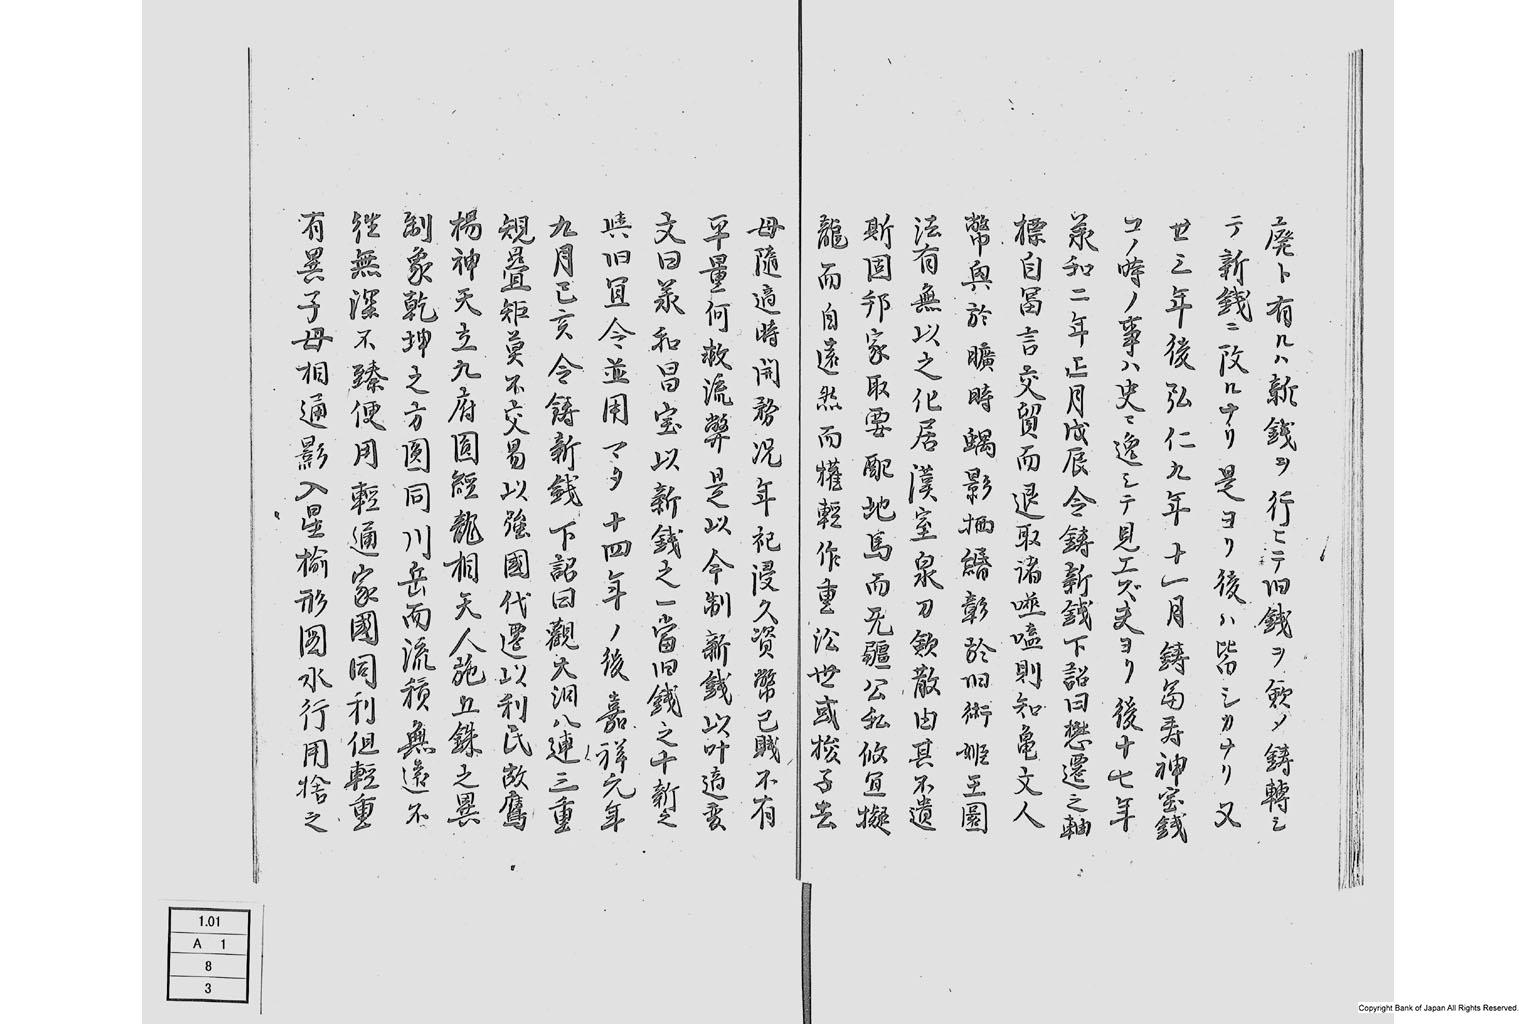 廃ト有ルハ新銭ヲ行ヒテ旧銭ヲ歛メ鋳轉シ
テ新銭ニ改ルナリ是ヨリ後ハ皆シカナリ又
廿三年後弘仁九年十一月鋳富寿神宝銭
コノ時ノ事ハ史ニ逸シテ見エズ夫ヨリ後十七年
承和二年正月戊辰令鋳新銭下詔曰懋遷之軸
標自冨言交貿而退取諸噬嗑則知亀文人
幣與於曠時蝸影栖緡彰於旧術姫王圜
法有無以之化居漢室泉刀歛散由其不遺
斯固邦家取要配地馬而无疆公私攸宜擬
龍而自遠然而權輕作重沿世或揆子去
母隨適時開務况年祀浸久資幣已賎不有
平量何救流弊是以今制新銭以叶適変
文曰承和昌宝以新銭之一當旧銭之十新之
與旧宜令並用マタ十四年ノ後嘉祥元年
九月己亥令鋳新銭下詔曰觀夫洞八連三重
規疊矩莫不交易以強國代遷以利民故鷹
楊神天立九府圓經龍相矢人施五銖之異
制象乾坤之方圓同川岳而流積無遠不
徃無深不臻便用輕通家國同利但輕重
有異子母相通影入星榆形圓水行用捨之
1.01
A 1
8
3
Copyright Bank of Japan All Rights Reserved.